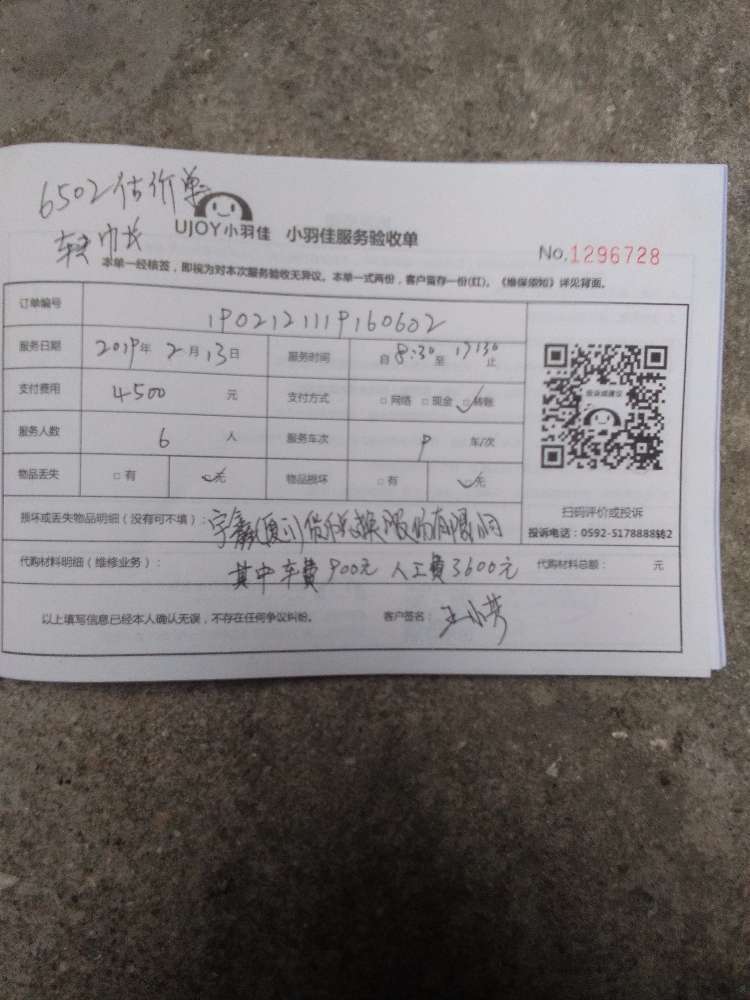 6502估价单
UJOY小羽佳 小羽佳服务验收单
No.1296728
本单一经核签，即视为对本次服务验收无异议。本单一式两份，客户留存一份(红)。《维保须知》详见背面。
订单编号 1902121119160602
服务日期 2019年 2月13日 服务时间 自8:30至17:30止
支付费用 4500 元 支付方式 □网络 □现金 ☑转账
服务人数 6 人 服务车次 9 车/次
物品丢失 □有 ☑无 物品损坏 □有 ☑无
扫码评价或投诉
投诉电话：0592-5178888转2
损坏或丢失物品明细（没有可不填）： 宇鑫(厦门)货币兑换股份有限公司
代购材料明细（维修业务）： 其中车费900元 人工费3600元 代购材料总额： 元
以上填写信息已经本人确认无误，不存在任何争议纠纷。 客户签名：